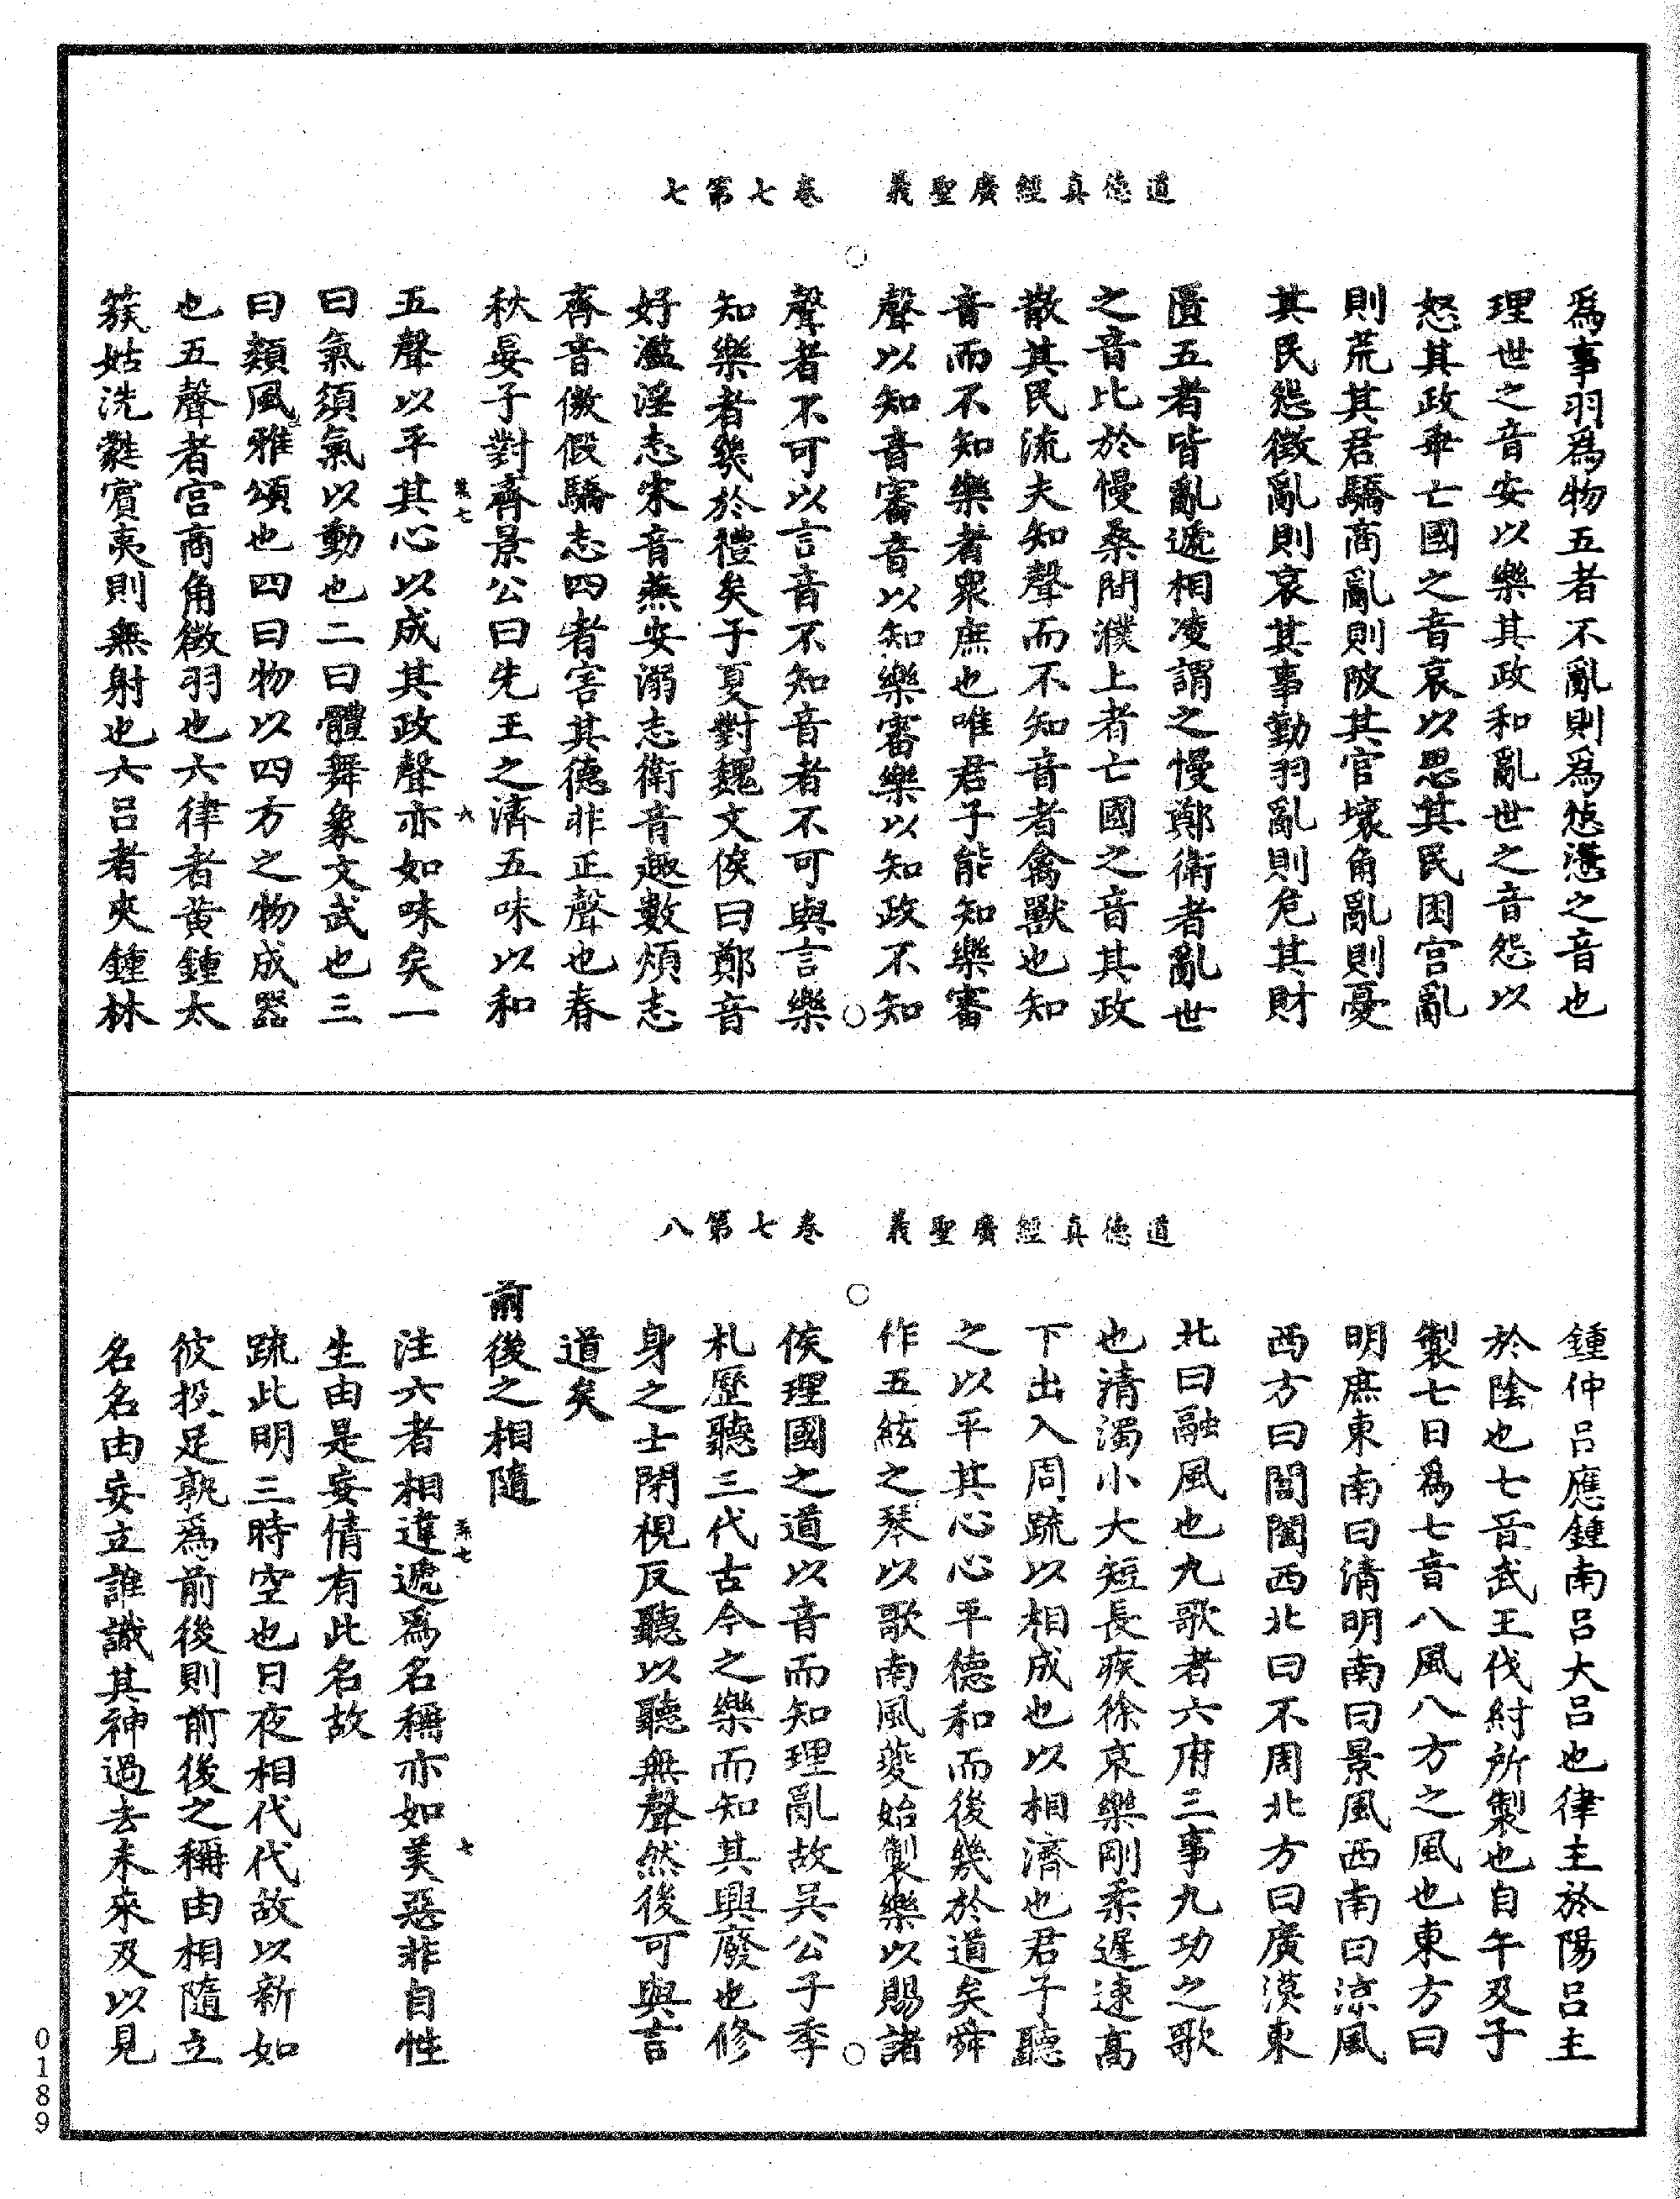 道德真經廣聖義　卷七第七
爲事羽爲物五者不亂則爲惉懘之音也
理世之音安以樂其政和亂世之音怨以
怒其政乖亡國之音哀以思其民困宫亂
則荒其君驕商亂則陂其官壞角亂則憂
其民怨徵亂則哀其事勤羽亂則危其財
匱五者皆亂遞相凌謂之慢鄭衛者亂世
之音比於慢桑間濮上者亡國之音其政
散其民流夫知聲而不知音者禽獸也知
音而不知樂者衆庶也唯君子能知樂審
聲以知音審音以知樂審樂以知政不知
聲者不可以言音不知音者不可與言樂
知樂者幾於禮矣子夏對魏文侯曰鄭音
好濫淫志宋音燕安溺志衛音趣數煩志
齊音傲假驕志四者害其德非正聲也春
秋晏子對齊景公曰先王之濟五味以和
五聲以平其心以成其政聲亦如味矣一
曰氣須氣以動也二曰體舞象文武也三
曰類風雅頌也四曰物以四方之物成器
也五聲者宫商角徵羽也六律者黄鍾太
簇姑洗蕤賓夷則無射也六吕者夾鍾林
道德真經廣聖義　卷七第八
鍾仲吕應鍾南吕大吕也律主於陽吕主
於陰也七音武王伐紂所製也自午及子
製七日爲七音八風八方之風也東方曰
明庶東南曰清明南曰景風西南曰涼風
西方曰閶闔西北曰不周北方曰廣漠東
北曰融風也九歌者六府三事九功之歌
也清濁小大短長疾徐哀樂剛柔遲速高
下出入周疏以相成也以相濟也君子聽
之以平其心心平德和而後幾於道矣舜
作五絃之琴以歌南風夔始製樂以賜諸
侯理國之道以音而知理亂故吴公子季
札歷聽三代古今之樂而知其興廢也修
身之士閉視反聽以聽無聲然後可與言
道矣
前後之相隨
注六者相違遞爲名稱亦如美惡非自性
生由是妄情有此名故
疏此明三時空也日夜相代代故以新如
彼投足孰爲前後則前後之稱由相隨立
名名由妄立誰識其神過去未來及以見
0189